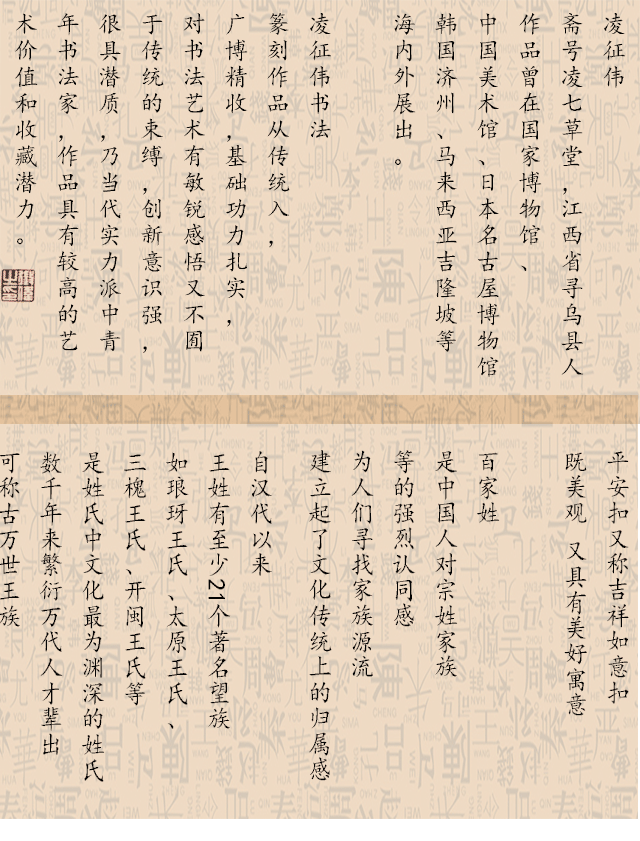 凌征伟
斋号凌七草堂,江西省寻乌县人
作品曾在国家博物馆、
中国美术馆、日本名古屋博物馆
韩国济州、马来西亚吉隆坡等
海内外展出。
凌征伟书法
篆刻作品从传统入,
广博精收,基础功力扎实,
对书法艺术有敏锐感悟又不囿
于传统的束缚,创新意识强,
很具潜质,乃当代实力派中青
年书法家,作品具有较高的艺
术价值和收藏潜力。
平安扣又称吉祥如意扣
既美观 又具有美好寓意
百家姓
是中国人对宗姓家族
等的强烈认同感
为人们寻找家族源流
建立起了文化传统上的归属感
自汉代以来
王姓有至少21个著名望族
如琅玡王氏、太原王氏、
三槐王氏、开闽王氏等
是姓氏中文化最为渊深的姓氏
数千年来繁衍万代人才辈出
可称古万世王族